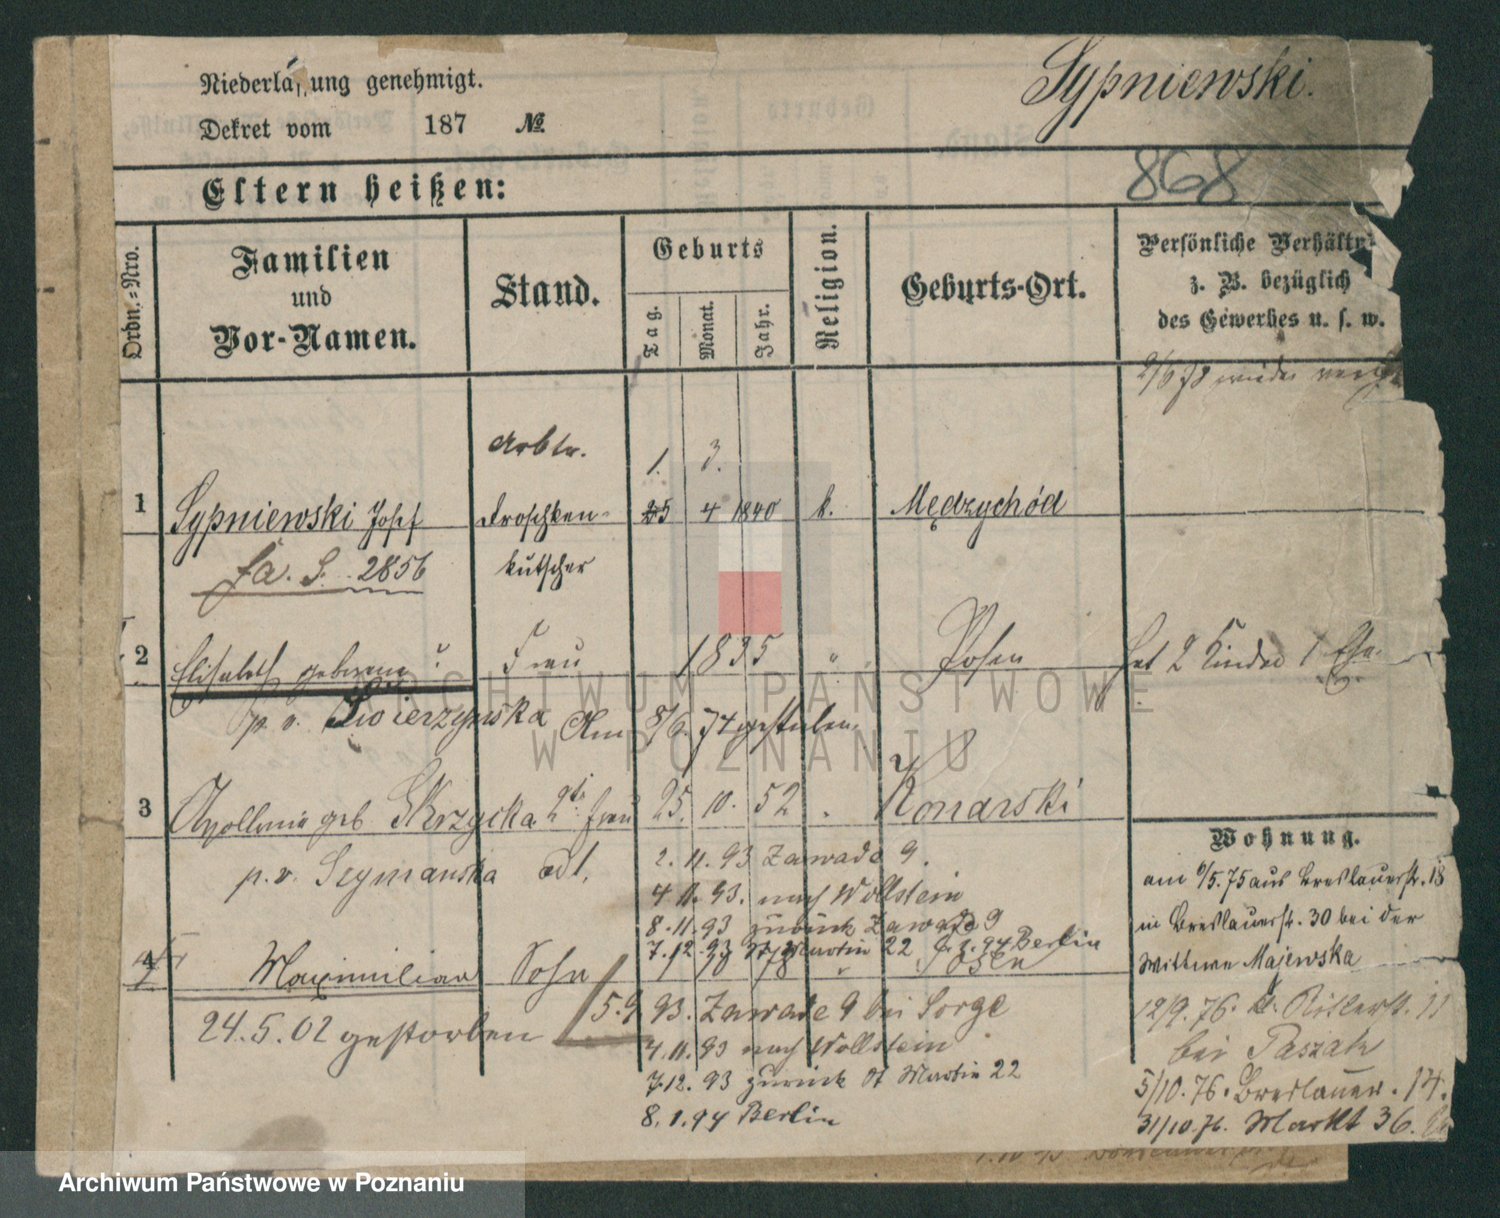 Sypniewski.
Niederla ung genehmigt.
Dekret vom 187 №
868
Eltern heißen:
Ordn.-Nro.
Familien
und
Vor-Namen.
Stand.
Geburts
Tag.
Monat.
Jahr.
Religion.
Geburts-Ort.
Persönliche Verhält
z. B. bezüglich
des Gewerbes u. s. w.
2/6 78 wieder
Arbtr. 1. 3.
1 Sypniewski Josef Droschken- 25 4 1840 k. Mędzychód
fa. S. 2856 kutscher
2 Elisabeth geborene Frau 1835 " Posen hat 2 Kinder 1 Ehe.
p. v. Swierzynska Am 8/6. 74 gestorben
3 Apollonia geb Skrzycka 2te Frau 25. 10. 52 " Konarski
p. v. Szymanska
Wohnung.
2. 11. 93 Zawade 9.
am 6/5. 75 aus Breslauerstr. 18
4. 11. 93. nach Wollstein
in Breslauerstr. 30 bei der
8. 11. 93 zurück Zawade 9
7. 12. 93 St Martin 22 8. 1. 94 Berlin
Wittwe Majewska
4 Maximilian Sohn 1/10 78 " Posen
24.5.02 gestorben
5.9 93. Zawade 9 bei Sorge
12/9. 76. Ritterst. 11
4. 11. 93 nach Wollstein
bei Paszak
7.12. 93 zurück St Martin 22
5/10. 76. Breslauer. 14.
8. 1. 94 Berlin
31/10. 76. Markt 36.
ARCHIWUM PAŃSTWOWE
W POZNANIU
Archiwum Państwowe w Poznaniu